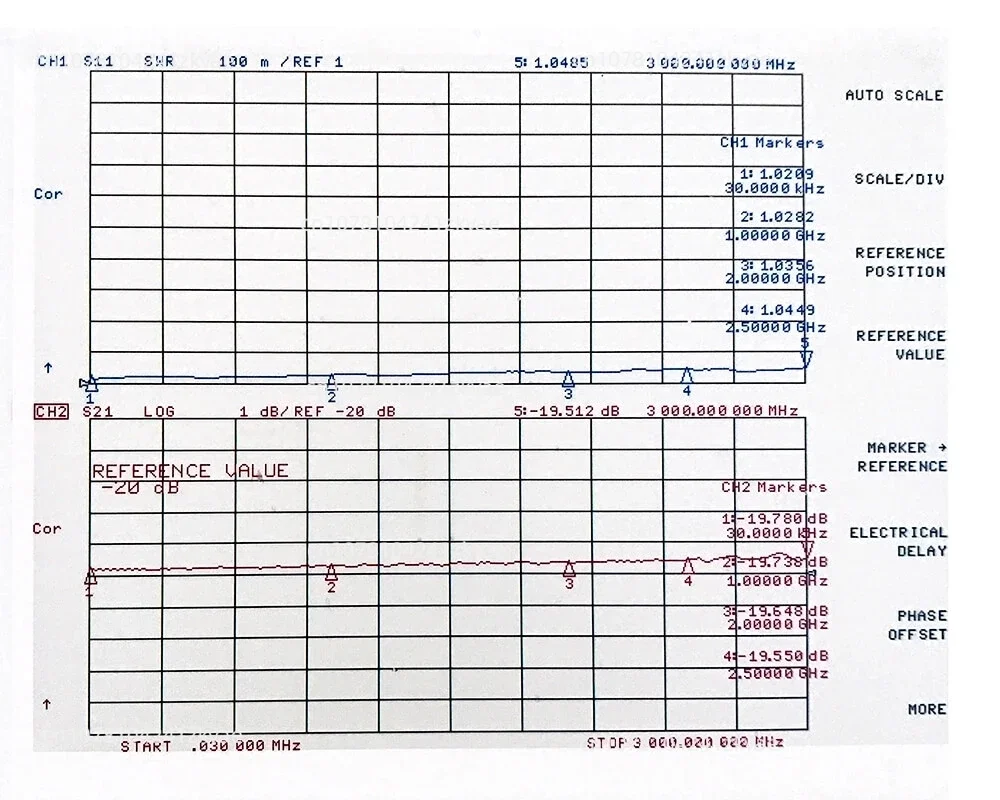 CH1 S11 SWR 100 m /REF 1 5: 1.0485 3 000.000 000 MHz
AUTO SCALE
CH1 Markers
1: 1.0209
30.0000 kHz
SCALE/DIV
Cor
2: 1.0282
1.00000 GHz
REFERENCE
POSITION
3: 1.0356
2.00000 GHz
4: 1.0449
2.50000 GHz
REFERENCE
VALUE
5
↑
1 2 3 4
CH2 S21 LOG 1 dB/ REF -20 dB 5:-19.512 dB 3 000.000 000 MHz
MARKER →
REFERENCE
REFERENCE VALUE
-20 dB
CH2 Markers
1:-19.780 dB
30.0000 kHz
Cor
ELECTRICAL
DELAY
2:-19.738 dB
1.00000 GHz
1 2 3 4
3:-19.648 dB
2.00000 GHz
PHASE
OFFSET
4:-19.550 dB
2.50000 GHz
↑
MORE
START .030 000 MHz STOP 3 000.000 000 MHz